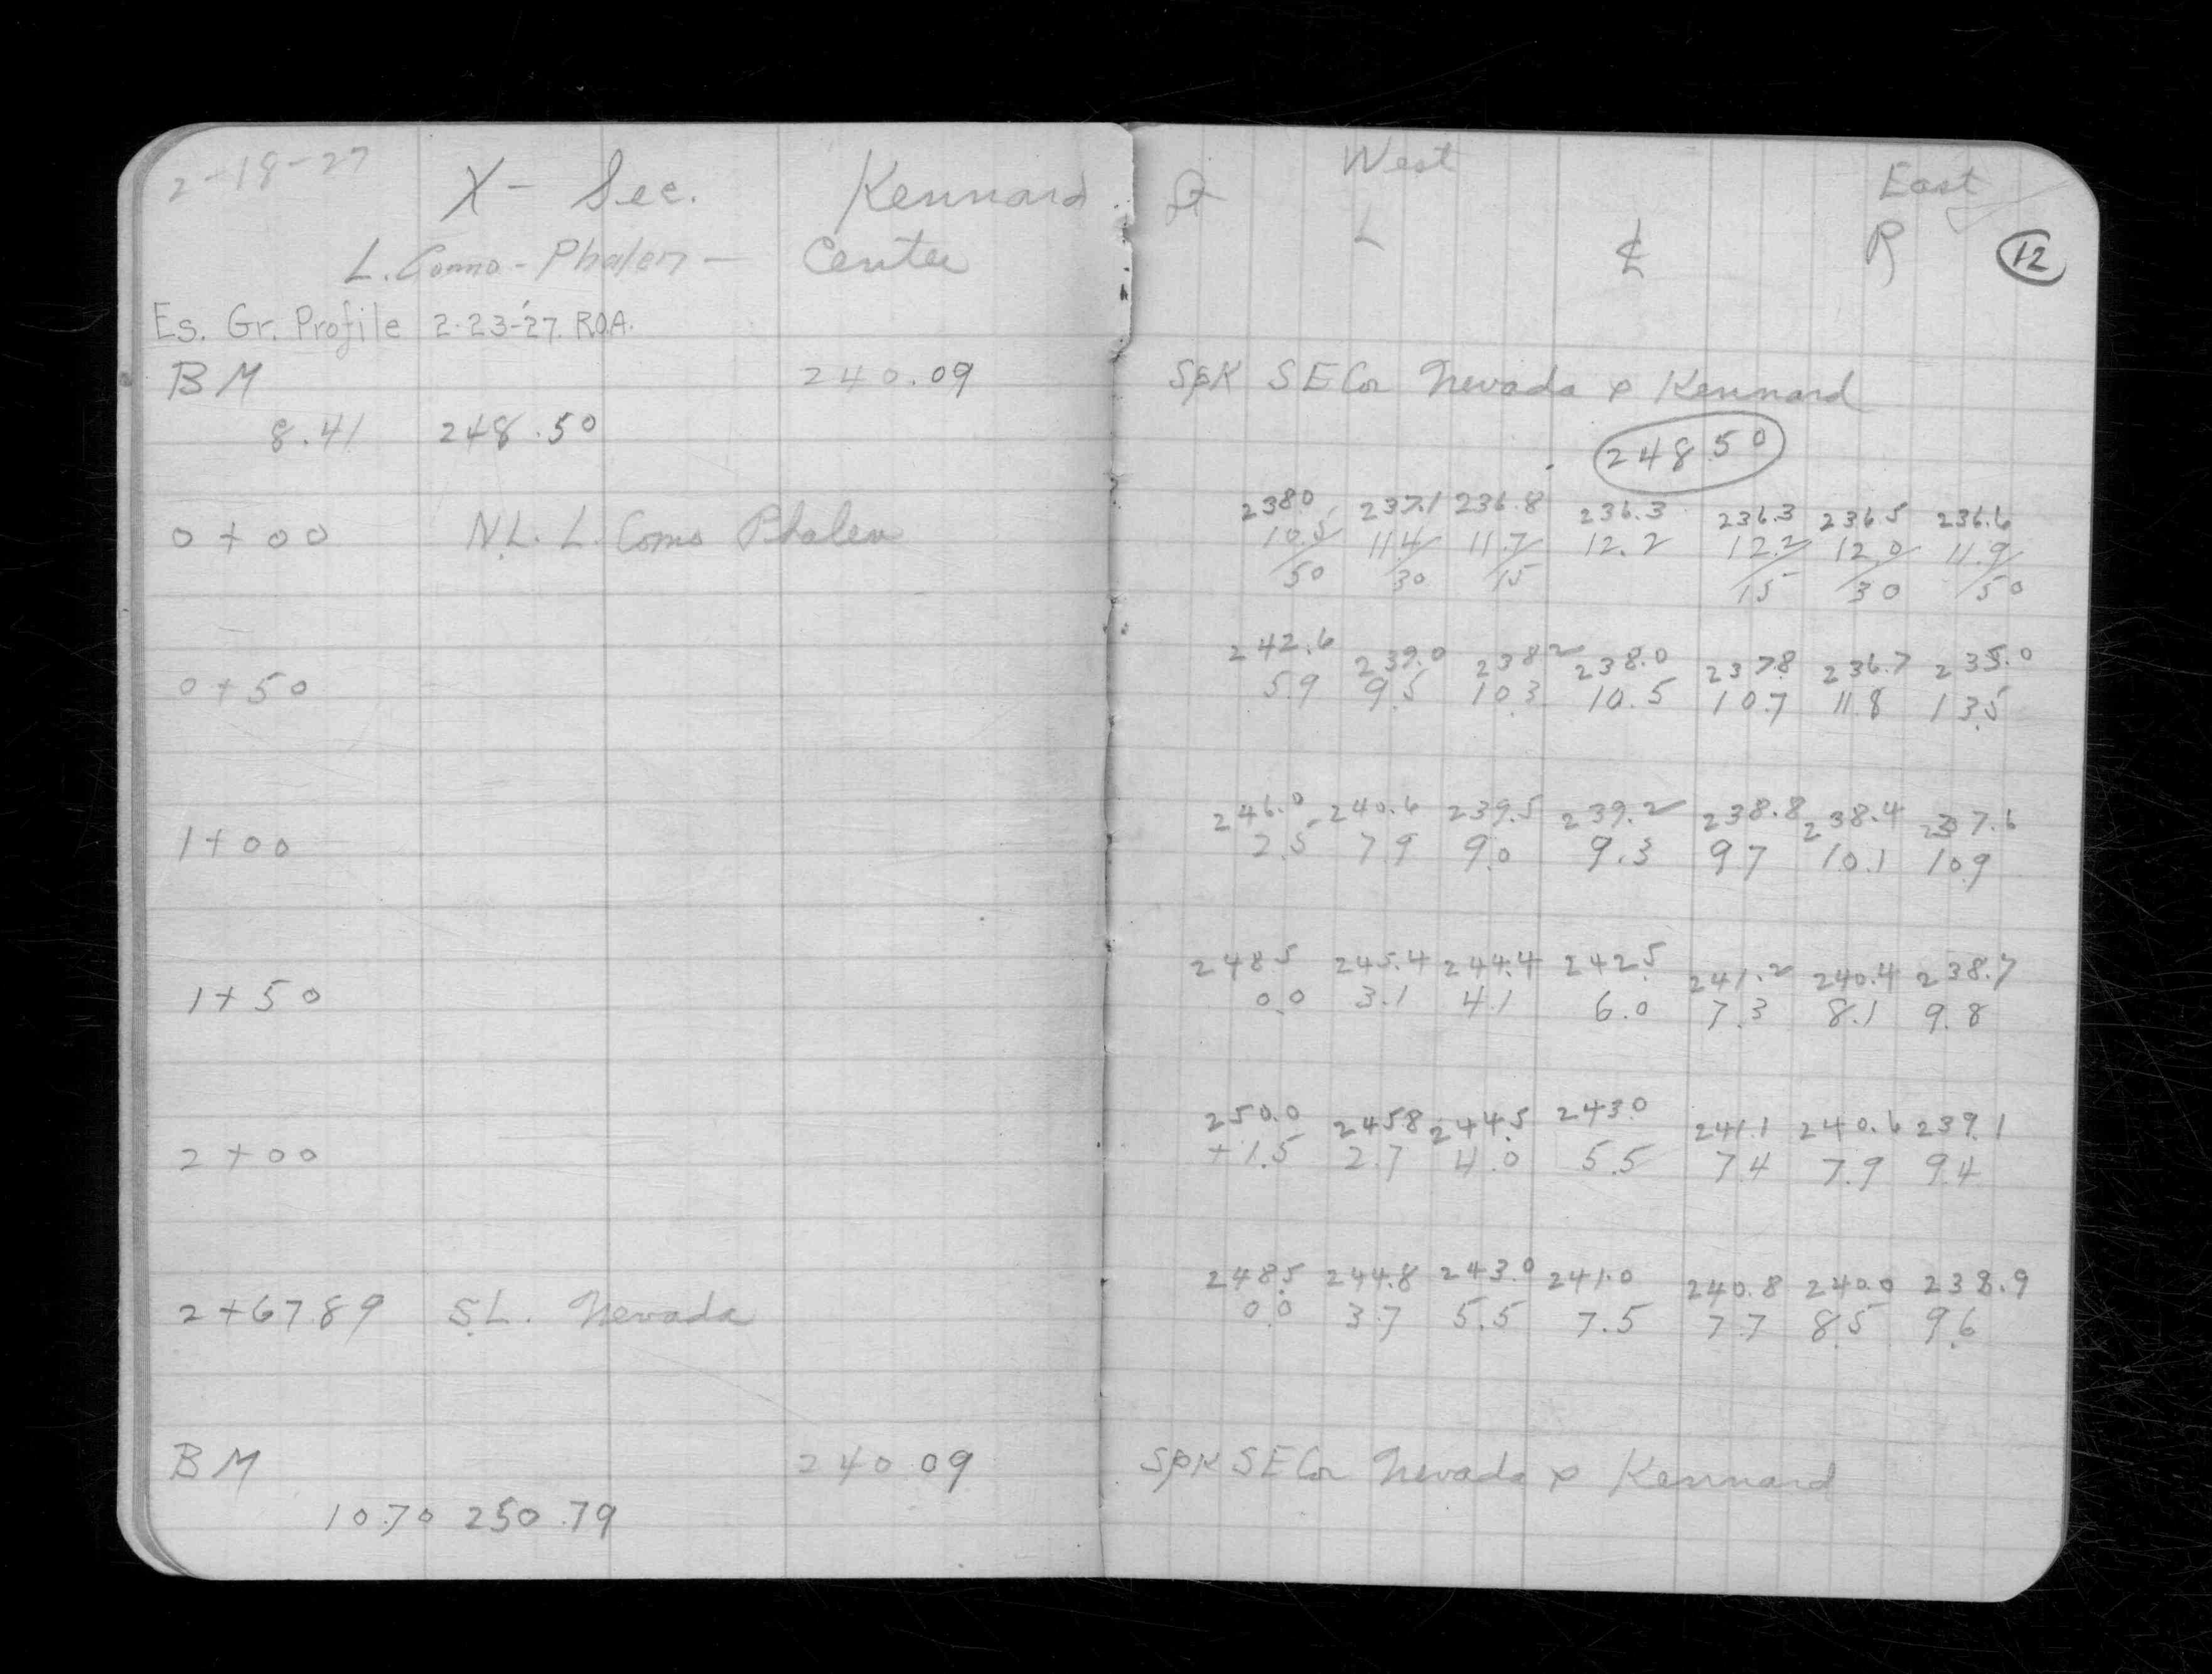 2-18-27
X-Sec. Kennard
L. Como-Phalen- Center
Es. Gr. Profile 2-23-'27. R.O.A.
BM 240.09
8.41 248.50
0+00 N.L. L. Como Phalen
0+50
1+00
1+50
2+00
2+67.89 S.L. Nevada
BM 240.09
10.70 250.79
West East
L ℄ R 12
Spk SE Cor Nevada & Kennard
248.50
238.0 237.1 236.8 236.3 236.3 236.5 236.6
10.5 11.4 11.7 12.2 12.2 12.0 11.9
50 30 15 15 30 50
242.6 239.0 238.2 238.0 237.8 236.7 235.0
5.9 9.5 10.3 10.5 10.7 11.8 13.5
246.0 240.6 239.5 239.2 238.8 238.4 237.6
2.5 7.9 9.0 9.3 9.7 10.1 10.9
248.5 245.4 244.4 242.5 241.2 240.4 238.7
0.0 3.1 4.1 6.0 7.3 8.1 9.8
250.0 245.8 244.5 243.0 241.1 240.6 239.1
+1.5 2.7 4.0 5.5 7.4 7.9 9.4
248.5 244.8 243.0 241.0 240.8 240.0 238.9
0.0 3.7 5.5 7.5 7.7 8.5 9.6
Spk SE Cor Nevada & Kennard